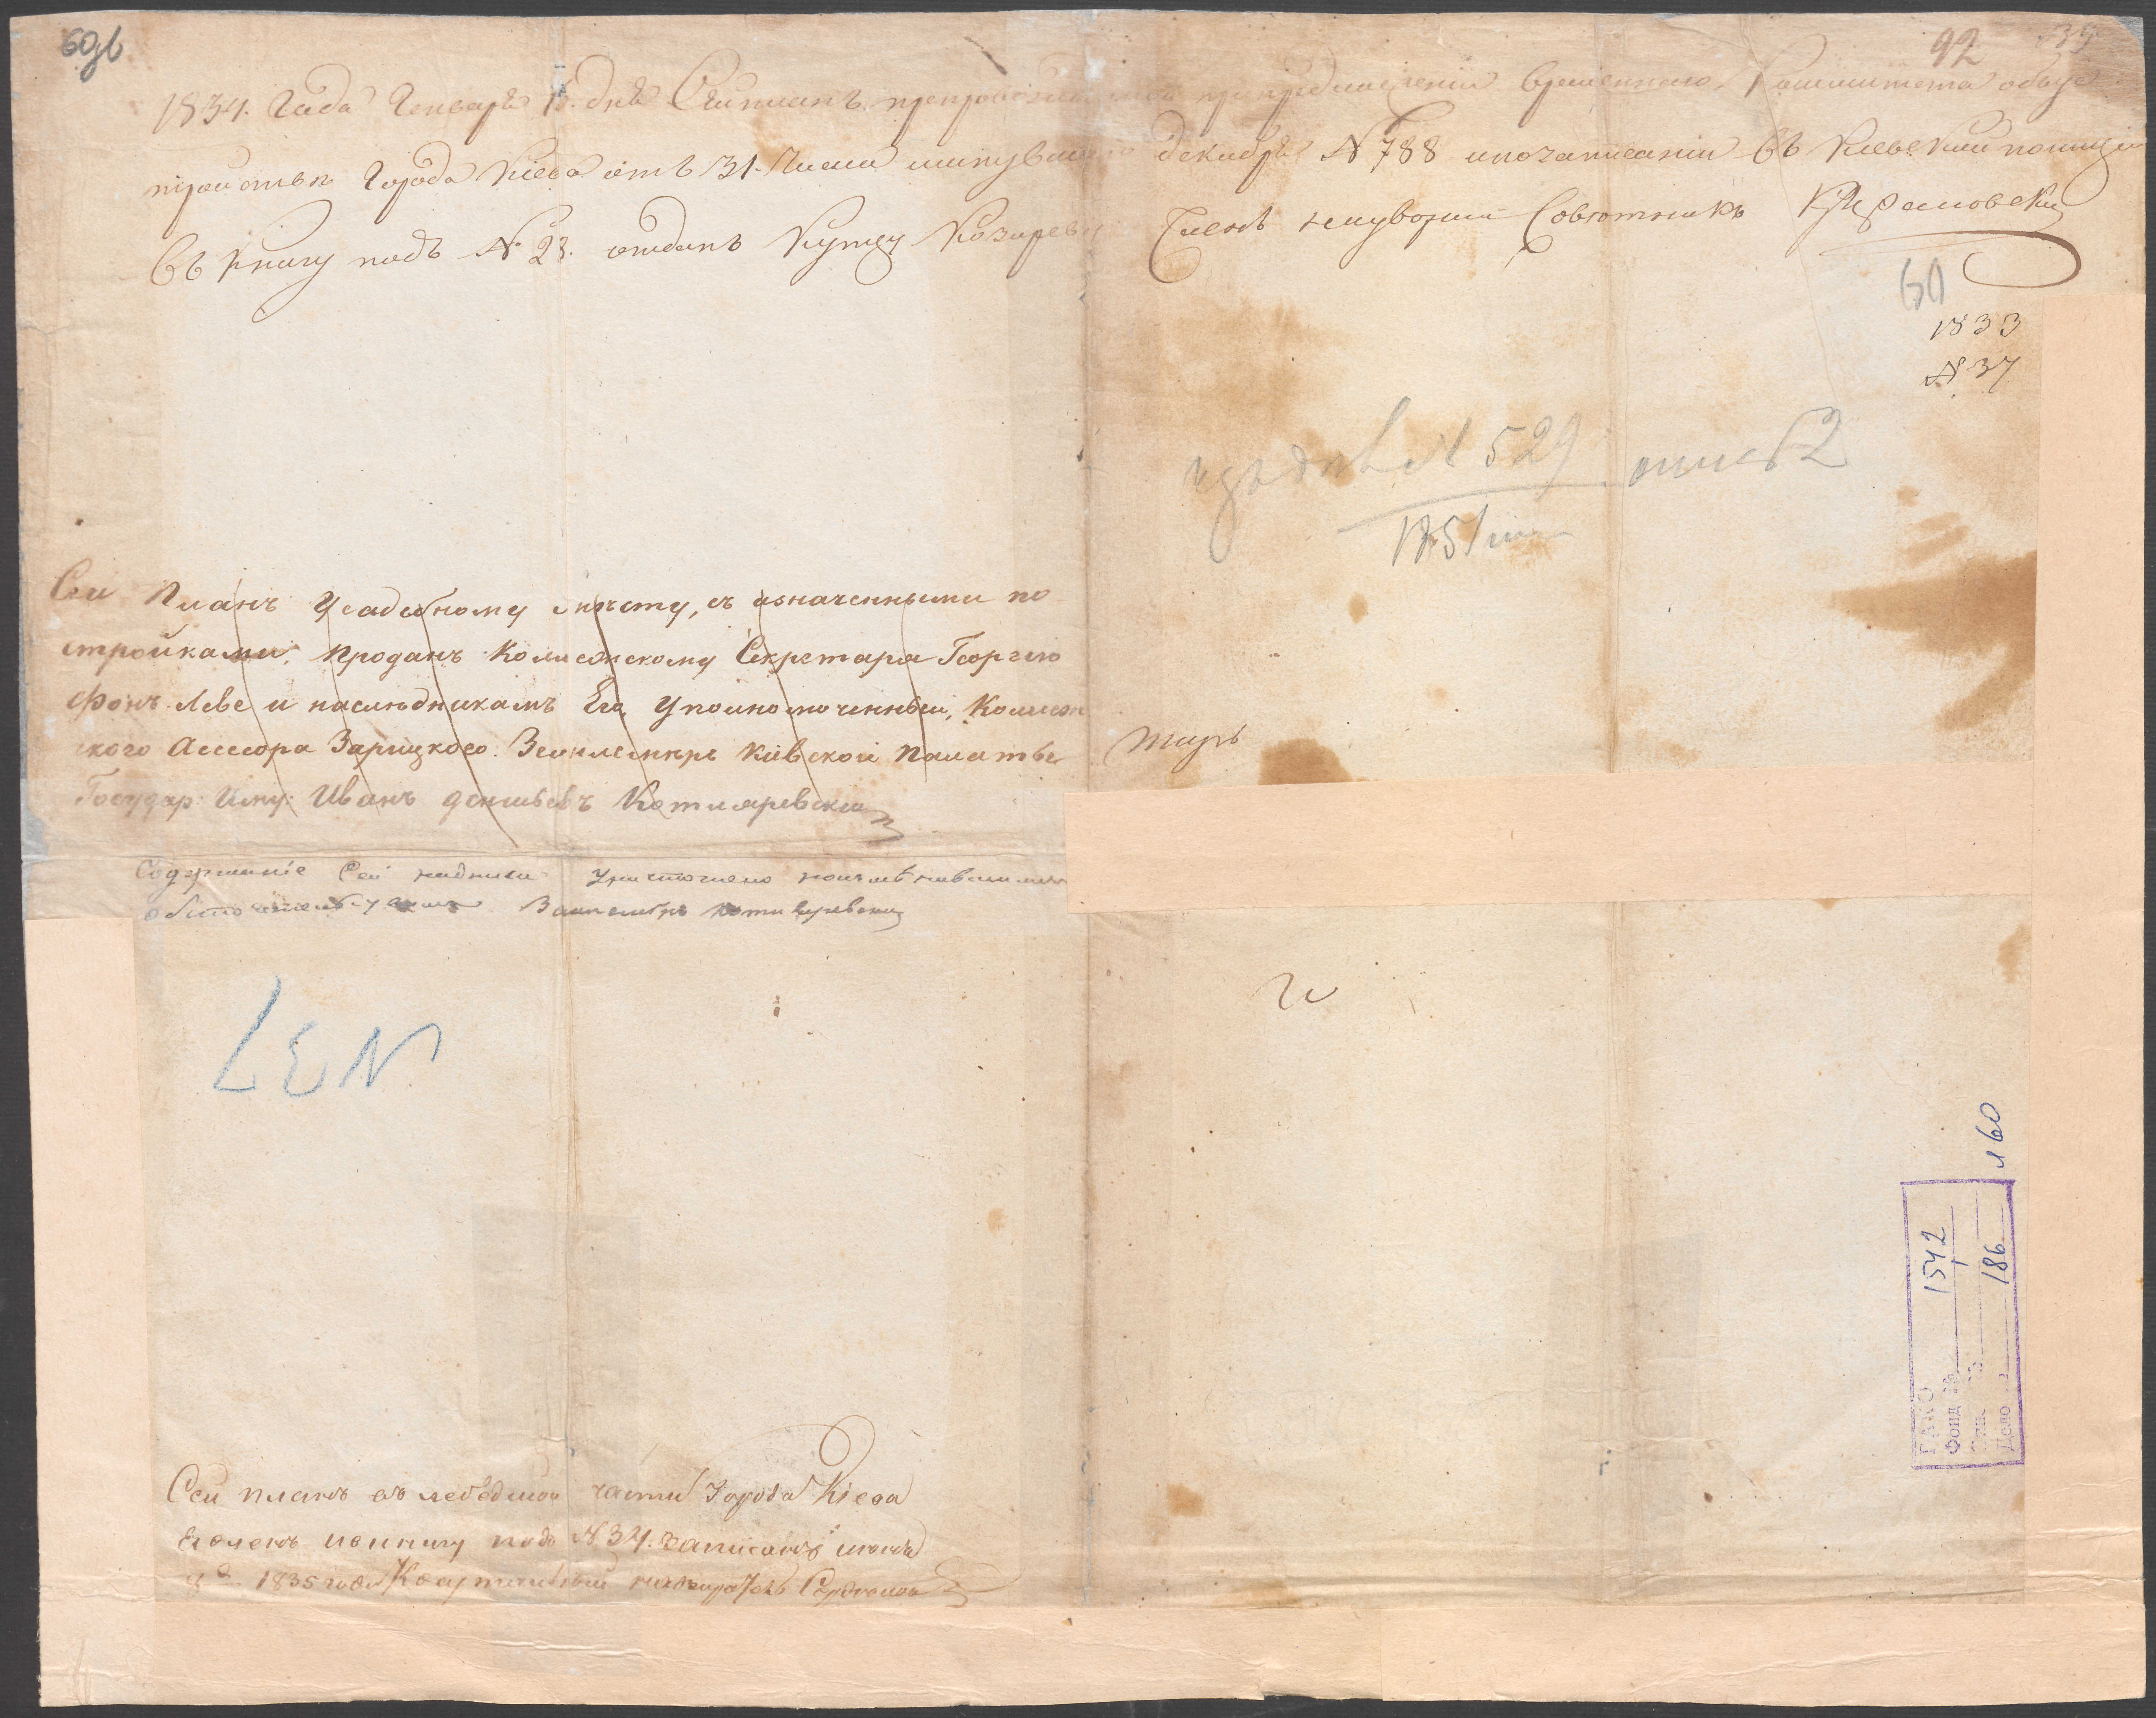 60об
92
1834. Года Генваря 15. дня Сей планъ препровожденный при предписаніи Временнаго Комитета объ ус
тройствѣ Города Кіева отъ 31. Числа минувшаго декабря № 788 и по записаніи въ Кіевской полиціи
въ книгу подъ № 28. отданъ Купцу Козиреву Членъ Надворный Совѣтникъ
60
1833
№ 37
529 опись 2
1851
Сей Планъ Усадебному мѣсту, съ означенными по
стройками, проданъ Колежскому Секретарю Георгію
фонъ Леве и наслѣдникамъ Его, Уполномоченный, Колеж
скаго Асесора Зарицкого. Землемѣръ Кіевской Палаты
Государ: Иму: Иванъ Котляревскій
Содержаніе Сей надписи Уничтожено
Землемѣръ Котляревскій
№37
Сей планъ въ лебедской части Города Кіева
явленъ и въ книгу подъ № 34. записанъ
8 1835 года Квартальный надзиратель
ГАКО
Фонд № 1542
Дело 186 л 60